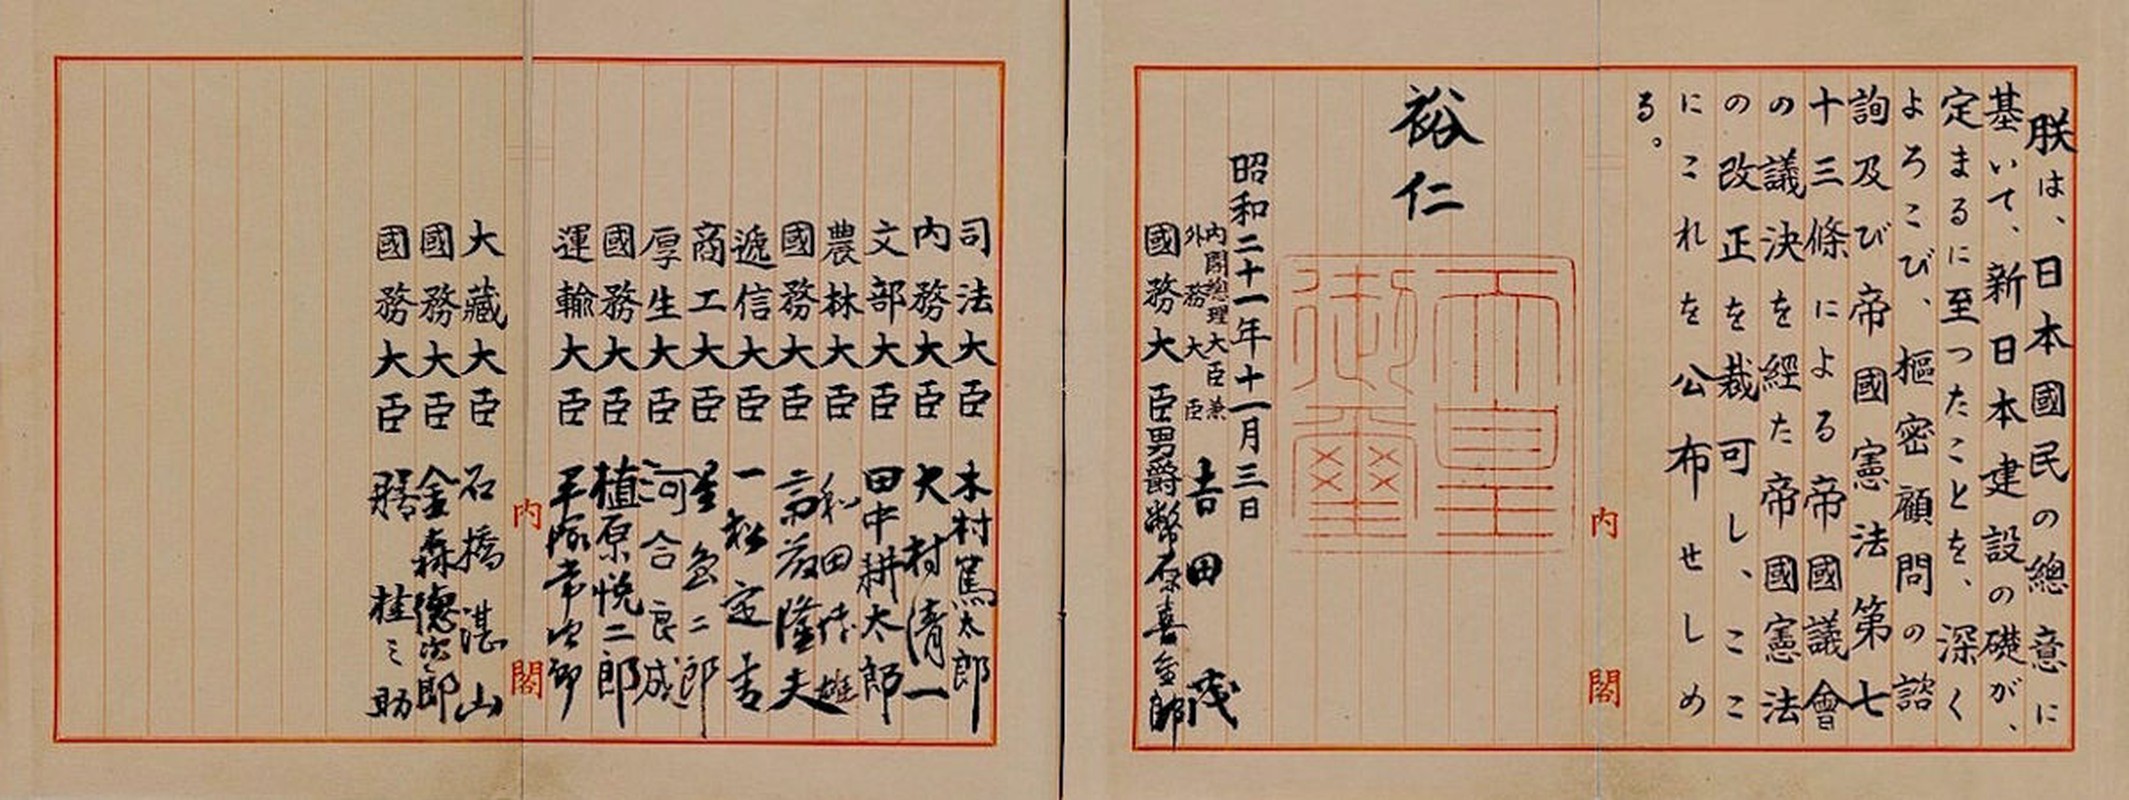 朕は、日本國民の總意に
基いて、新日本建設の礎が、
定まるに至つたことを、深く
よろこび、樞密顧問の諮
詢及び帝國憲法第七
十三條による帝國議會
の議決を経た帝國憲法
の改正を裁可し、ここ
にこれを公布せしめ
る。
裕仁
天皇
御璽
昭和二十一年十一月三日
内閣總理大臣兼
外務大臣 吉田茂
國務大臣男爵幣原喜重郎
内閣
司法大臣 木村篤太郎
内務大臣 大村清一
文部大臣 田中耕太郎
農林大臣 和田博雄
國務大臣 斎藤隆夫
遞信大臣 一松定吉
商工大臣 星島二郎
厚生大臣 河合良成
國務大臣 植原悦二郎
運輸大臣 平塚常次郎
内閣
大藏大臣 石橋湛山
國務大臣 金森德次郎
國務大臣 膳桂之助